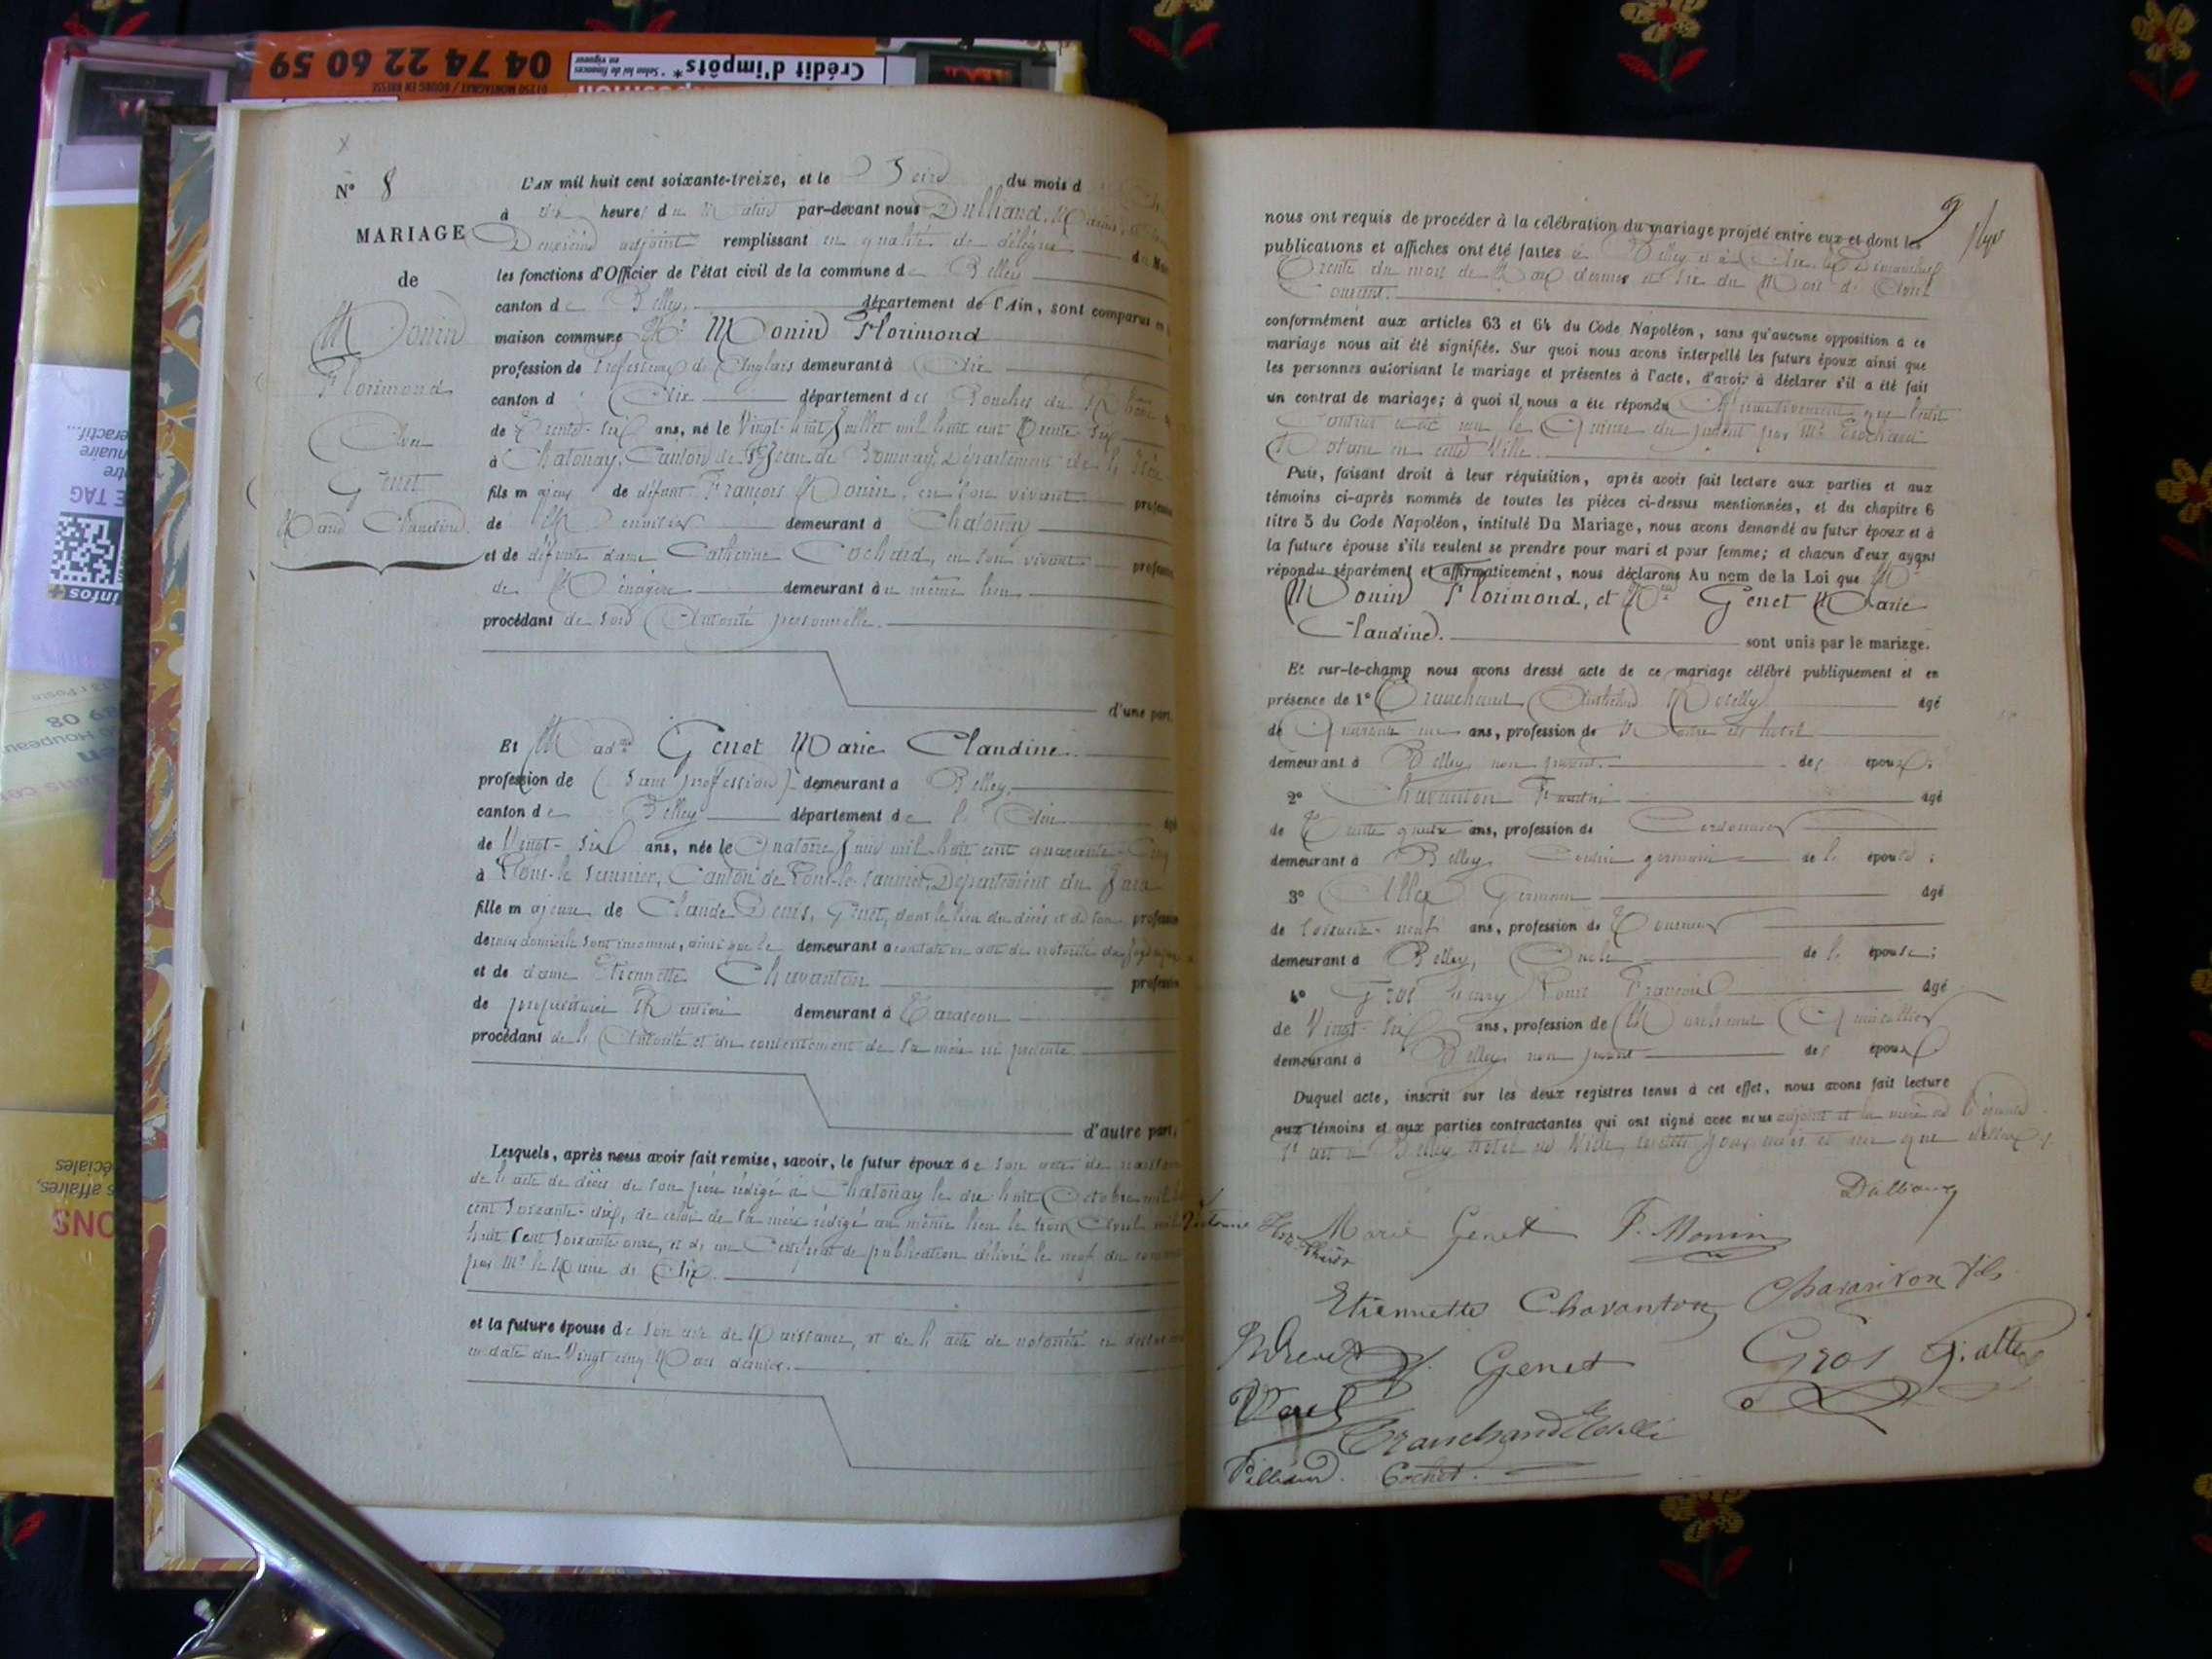 04 74 22 60 59
Crédit d'impôts*
* Selon loi de finances en vigueur
01250 MONTAGNAT / BOURG EN BRESSE
infos+
N° 8
MARIAGE
de
Monin
Florimond
Avec
Genet
Marie Claudine.
L'AN mil huit cent soixante-treize, et le Seize du mois d
à dix heures du Matin par-devant nous Dulliand, Marin,
Deuxième adjoint remplissant en qualité de délégué du
les fonctions d'Officier de l'état civil de la commune de Belley
canton de Belley, département de l'Ain, sont comparus en
maison commune Mr Monin Florimond
profession de Professeur d'Anglais demeurant à Aix
canton d'Aix département des Bouches du Rhône
de Trente-six ans, né le Vingt-huit Juillet mil huit cent Trente-six
à Chatonay, Canton de St Jean de Bournay, Département de l'Isère
fils majeur de défunt François Monin, en son vivant profession
de demeurant à Chatonay
et de défunte dame Catherine Cochard, en son vivant profession
de Ménagère demeurant au même lieu
procédant de son Autorité personnelle.
d'une part.
Et Madlle Genet Marie Claudine.
profession de (sans profession) demeurant à Belley,
canton de Belley département de l'Ain
de Vingt-six ans, née le Quatorze mil huit cent quarante-
à Lons-le-Saunier, Canton de Lons-le-Saunier, Département du Jura
fille majeure de Claude Denis, Genet, dont le lieu du décès et de son profession
dernier domicile sont inconnus, ainsi que le demeurant à constate un acte de notoriété
et de dame Etiennette Chavanton profession
de propriétaire Rentière demeurant à Tarascon
procédant de l'Autorité et du consentement de sa mère ici présente.
d'autre part;
Lesquels, après nous avoir fait remise, savoir, le futur époux de son acte de naissance
de l'acte de décès de son père rédigé à Chatonay le dix-huit Octobre mil
cent soixante-dix, de celui de sa mère rédigé au même lieu le trois Avril mil
huit cent soixante onze, et d'un Certificat de publication délivré le neuf du courant
par Mr le Maire de Aix.
et la future épouse de son acte de Naissance, et de l'acte de notoriété ci dessus
en date du Vingt cinq Mars dernier.
9
nous ont requis de procéder à la célébration du mariage projeté entre eux et dont les
publications et affiches ont été faites à Belley et à Aix, les Dimanches
Trente du mois de Mars dernier et six du Mois d'Avril
Courant.
conformément aux articles 63 et 64 du Code Napoléon, sans qu'aucune opposition à ce
mariage nous ait été signifiée. Sur quoi nous avons interpellé les futurs époux ainsi que
les personnes autorisant le mariage et présentes à l'acte, d'avoir à déclarer s'il a été fait
un contrat de mariage; à quoi il nous a été répondu Affirmativement que ledit
Contrat a été reçu le Quinze du présent par Me
Notaire en cette Ville.
Puis, faisant droit à leur réquisition, après avoir fait lecture aux parties et aux
témoins ci-après nommés de toutes les pièces ci-dessus mentionnées, et du chapitre 6
titre 5 du Code Napoléon, intitulé Du Mariage, nous avons demandé au futur époux et à
la future épouse s'ils veulent se prendre pour mari et pour femme; et chacun d'eux ayant
répondu séparément et affirmativement, nous déclarons Au nom de la Loi que Mr
Monin Florimond, et Mlle Genet Marie
Claudine. sont unis par le mariage.
Et sur-le-champ nous avons dressé acte de ce mariage célébré publiquement et en
présence de 1° Tranchand agé
de Quarante un ans, profession de Maître d'hôtel
demeurant à Belley non parent. des époux;
2° Chavanton agé
de Trente quatre ans, profession de Cordonnier
demeurant à Belley Cousin germain de l'épouse;
3° Allex Germain agé
de Soixante-neuf ans, profession de Tourneur
demeurant à Belley, Oncle de l'épouse;
4° Gros Henry Louis François agé
de Vingt-six ans, profession de Marchand Quincallier
demeurant à Belley non parent des époux
Duquel acte, inscrit sur les deux registres tenus à cet effet, nous avons fait lecture
aux témoins et aux parties contractantes qui ont signé avec nous adjoint et la mère de l'épouse.
Fait à Belley hôtel de Ville, les dits jour, mois et an que dessus.
Dulliand
Marie Genet F. Monin
Etiennette Chavanton Chavanton fils
Genet Gros G. allex
Tranchand
Cochet.